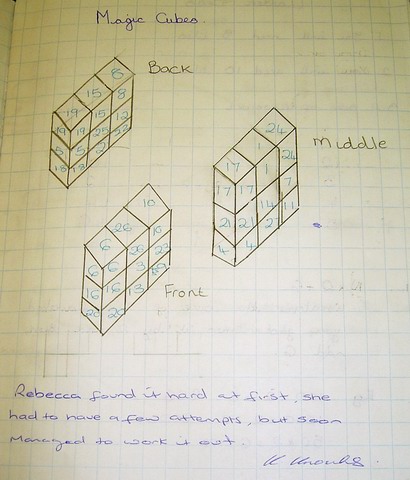 Magic Cubes.
8
15
19
Back
8
15 12
19 19 25 23
5 5 2
18 18
24
1
17
Middle
24
1 7
17 17 14 11
21 21 27
4 4
10
26
6
10
26 23
6 6 3
16 16 13
20 20
Front
Rebecca found it hard at first, she
had to have a few attempts, but soon
managed to work it out.
K